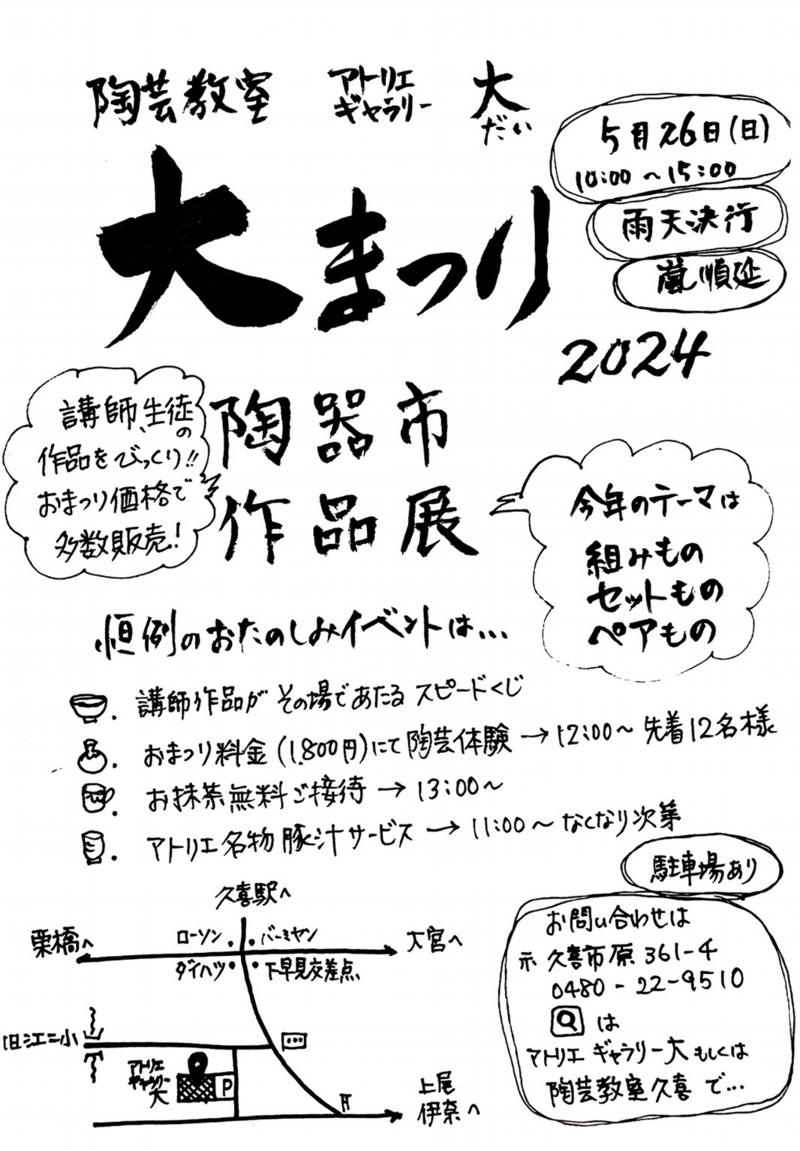 陶芸教室 アトリエ ギャラリー 大 だい
5月26日(日)
10:00～15:00
雨天決行
嵐順延
大まつり
2024
講師、生徒の
作品をびっくり!!
おまつり価格で
多数販売!
陶器市
作品展
今年のテーマは
組みもの
セットもの
ペアもの
恒例のおたのしみイベントは...
講師作品がその場であたるスピードくじ
おまつり料金(1,800円)にて陶芸体験→12:00～先着12名様
お抹茶無料ご接待→13:00～
アトリエ名物豚汁サービス→11:00～なくなり次第
駐車場あり
久喜駅へ
栗橋へ
ローソン
バーミヤン
大宮へ
ダイハツ
下早見交差点
旧江二小
アトリエ
ギャラリー
大
P
上尾
伊奈へ
お問い合わせは
久喜市原361-4
0480-22-9510
は
アトリエ ギャラリー大 もしくは
陶芸教室久喜 で...